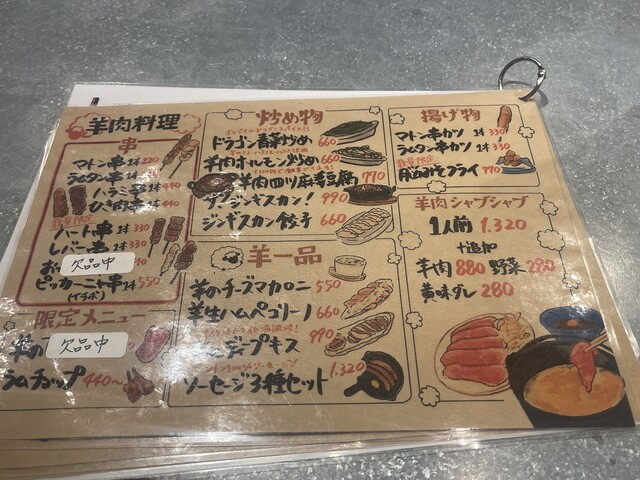 羊肉料理
串
マトン串 1本 220
ラムタン串 1本
ハラミ串 1本 440
数量限定
ひき肉串 1本 440
ハート串 1本 330
レバー串 1本 330
欠品中
ピッカーニャ串 1本 550
(イチボ)
限定メニュー
羊の
欠品中
ラムチョップ 440〜
炒め物
ドラゴン青菜炒め 660
羊肉ホルモン炒め 660
羊肉四川麻婆豆腐 770
ジンギスカン! 990
ジンギスカン餃子 660
羊一品
羊のチーズマカロニ 550
羊生ハムペコリーノ 660
ディプキス 990
ソーセージ3種セット 1.320
揚げ物
マトン串カツ 1本 330
ラムタン串カツ 1本 330
数量限定
脳みそフライ 770
羊肉シャブシャブ
1人前 1.320
+追加
羊肉 880 野菜 280
黄味ダレ 280